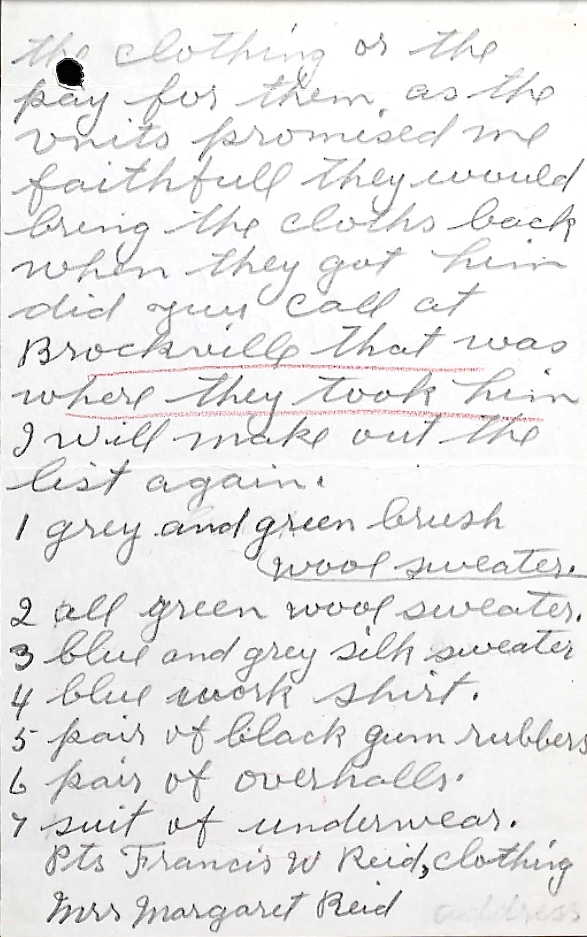 the clothing or the
pay for them, as the
units promised me
faithfull they would
bring the cloths back
when they got him
did you call at
Brockville that was
where they took him
I will make out the
list again.
1 grey and green brush
wool sweater.
2 all green wool sweater.
3 blue and grey silk sweater
4 blue work shirt.
5 pair of black gum rubbers
6 pair of overhalls.
7 suit of underwear.
Pts Francis W Reid, clothing
Mrs Margaret Reid address